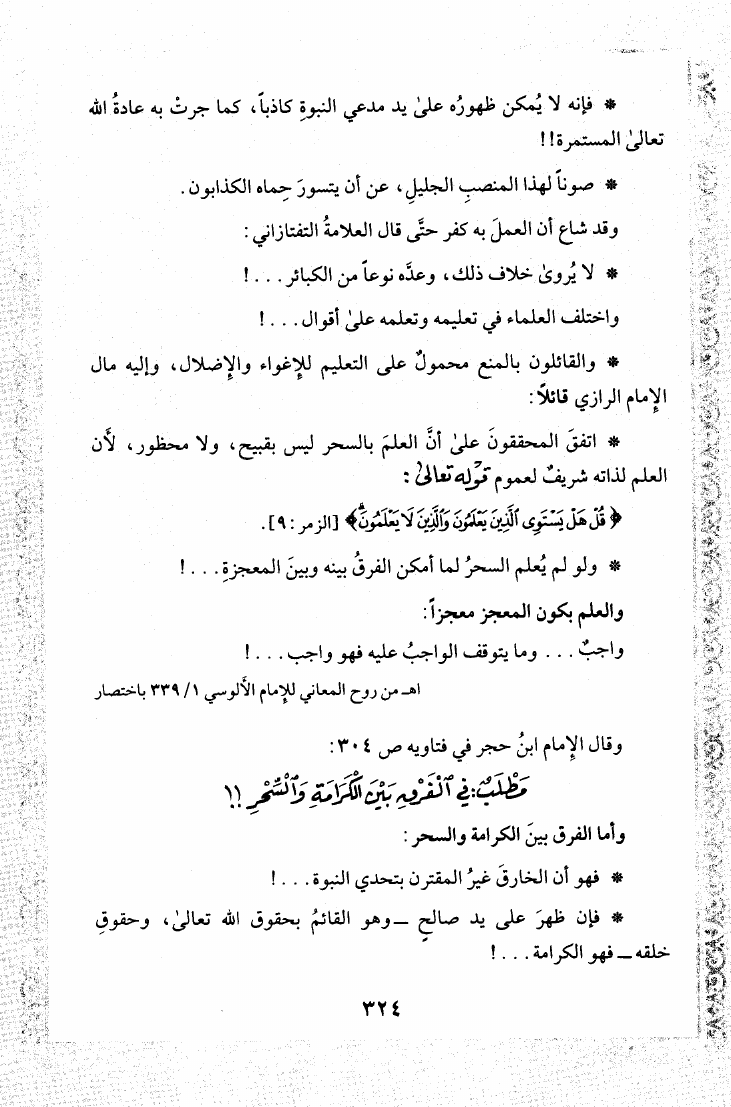 * فإنه لا يُمكن ظهورُه علىٰ يد مدعي النبوةِ كاذباً، كما جرتْ به عادةُ الله
تعالىٰ المستمرة!!
* صوناً لهذا المنصبِ الجليلِ، عن أن يتسورَ حِماه الكذابون.
وقد شاع أن العملَ به كفر حتَّى قال العلامةُ التفتازاني:
* لا يُروىٰ خلاف ذلك، وعدَّه نوعاً من الكبائر...!
واختلف العلماء في تعليمه وتعلمه علىٰ أقوال...!
* والقائلون بالمنع محمولٌ على التعليم للإغواء والإضلال، وإليه مال
الإمام الرازي قائلاً:
* اتفقَ المحققونَ علىٰ أنَّ العلمَ بالسحر ليس بقبيح، ولا محظور، لأن
العلم لذاته شريفٌ لعموم قوله تعالىٰ:
﴿ قُلْ هَلْ يَسْتَوِى ٱلَّذِينَ يَعْلَمُونَ وَٱلَّذِينَ لَا يَعْلَمُونَۗ ﴾ [الزمر: ٩].
* ولو لم يُعلم السحرُ لما أمكن الفرقُ بينه وبينَ المعجزةِ...!
والعلم بكون المعجز معجزاً:
واجبٌ... وما يتوقف الواجبُ عليه فهو واجب...!
اهـ من روح المعاني للإمام الألوسي ١/ ٣٣٩ باختصار
وقال الإمام ابنُ حجر في فتاويه ص ٣٠٤:
مَطْلَبٌ: فِي ٱلْفَرْقِ بَيْنَ ٱلْكَرَامَةِ وَٱلسِّحْرِ !!
وأما الفرق بينَ الكرامة والسحر:
* فهو أن الخارقَ غيرُ المقترن بتحدي النبوة...!
* فإن ظهرَ على يد صالحٍ ــ وهو القائمُ بحقوق الله تعالىٰ، وحقوقِ
خلقه ــ فهو الكرامة...!
٣٢٤